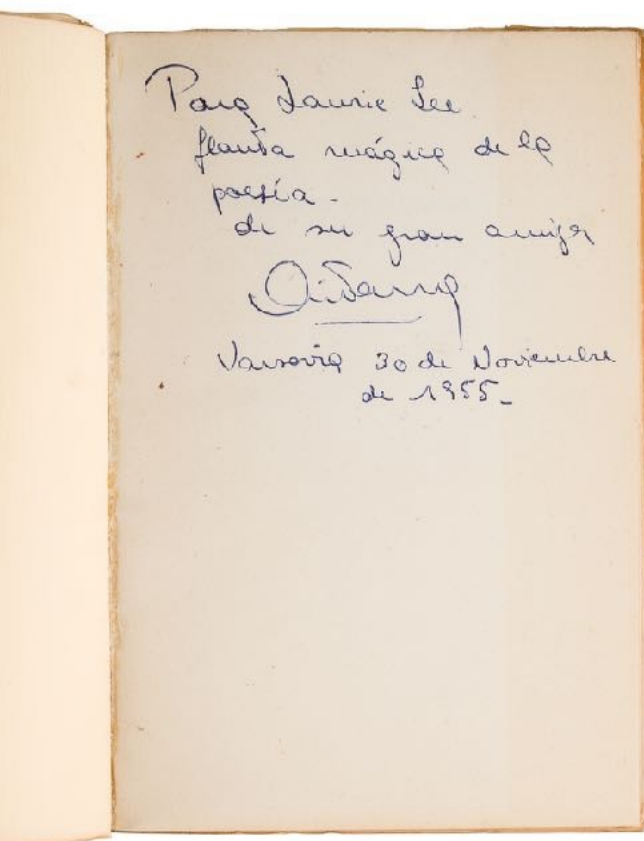 Para Laurie Lee
flauta mágica de la
poesía -
de su gran amiga
Aitana
Varsovia 30 de Noviembre
de 1955 -